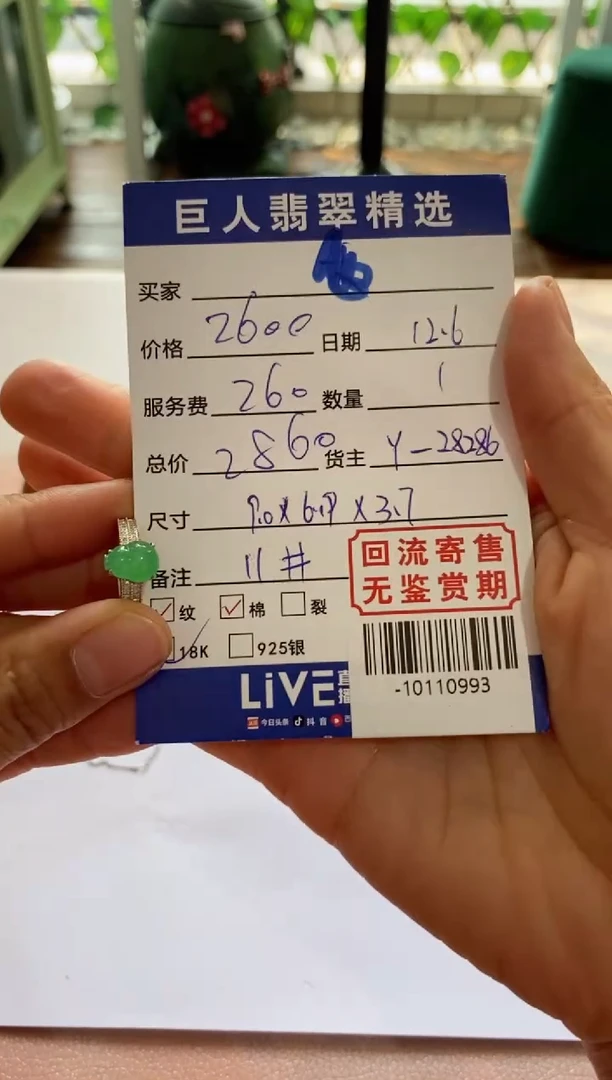 巨人翡翠精选
买家
价格 2600 日期 12.6
服务费 260 数量 1
总价 2860 货主 Y-28286
尺寸 9.0×6.9×3.7
备注 11#
回流寄售
无鉴赏期
纹 棉 裂
18K 925银
-10110993
LiVE直播
今日头条 抖音